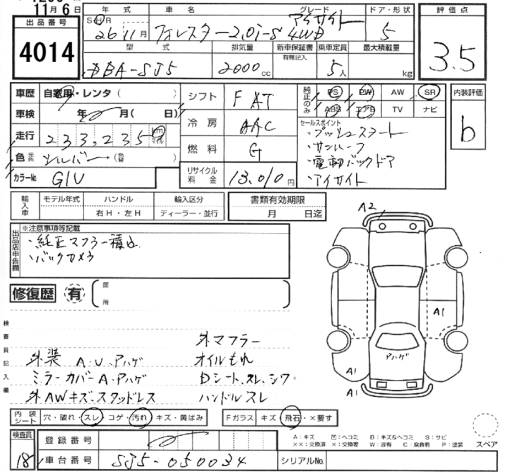 11月6日
出品番号
4014
年式 車名 グレード ドア・形状 評価点
26 11月 フォレスター2.0i-S アイサイト 4WD 5 3.5
型式 排気量 新車保証書 乗車定員 最大積載量
有無記入
DBA-SJ5 2000cc 5人 kg
車歴 自家用・レンタ( ) シフト F AT 純正のみ PS PW AW SR 内装評価
車検 年 月 日 冷房 AAC ABS エアB TV ナビ b
走行 233,235 燃料 G セールスポイント
・プッシュスタート
・サンルーフ
・電動バックドア
・アイサイト
色 シルバー
カラーNo. G1U リサイクル料金 13,010円
輸入車 モデル年式 ハンドル 輸入区分 書類有効期限
右H・左H ディーラー・並行 月 日迄
出品店申告欄 ※注意事項等記載
・純正マフラー積込
・バックカメラ
修復歴 有 箇所
検査員記入欄
外マフラー
外装 A.U.アハゲ オイルもれ
ミラーカバーA.アハゲ Dシート、スレ、シワ
外AWキズ、スタッドレス ハンドルスレ
A2
A1
A1
A1
アハゲ
内装シート 穴・破れ・スレ コゲ・汚れ キズ・黄ばみ Fガラス キズ・飛石・×要す
A:キズ U:凹ヘコミ B:キズ&ヘコミ S:サビ
スペア
検査員 18
登録番号
車台番号 SJ5-050034 シリアルNo.